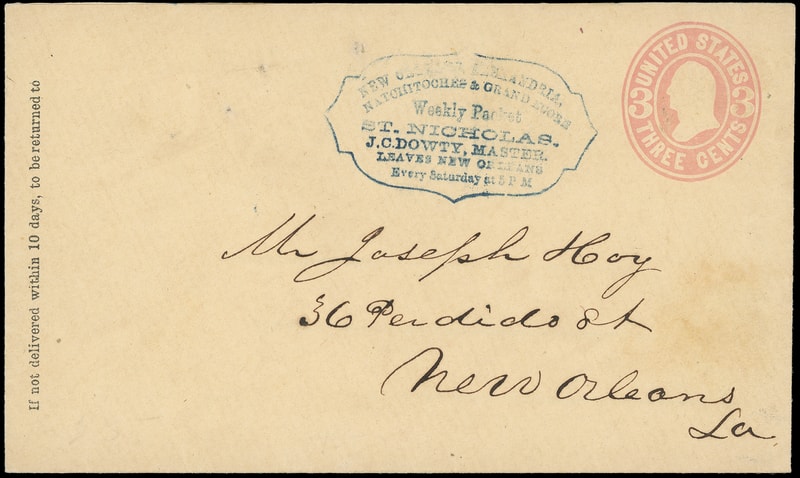 If not delivered within 10 days, to be returned to
NEW ORLEANS, ALEXANDRIA,
NATCHITOCHES & GRAND ECORE
Weekly Packet
ST. NICHOLAS.
J.C.DOWTY, MASTER.
LEAVES NEW ORLEANS
Every Saturday at 5 P M
UNITED STATES
3 3
THREE CENTS
Mr Joseph Hoy
36 Perdido St
New Orleans
La